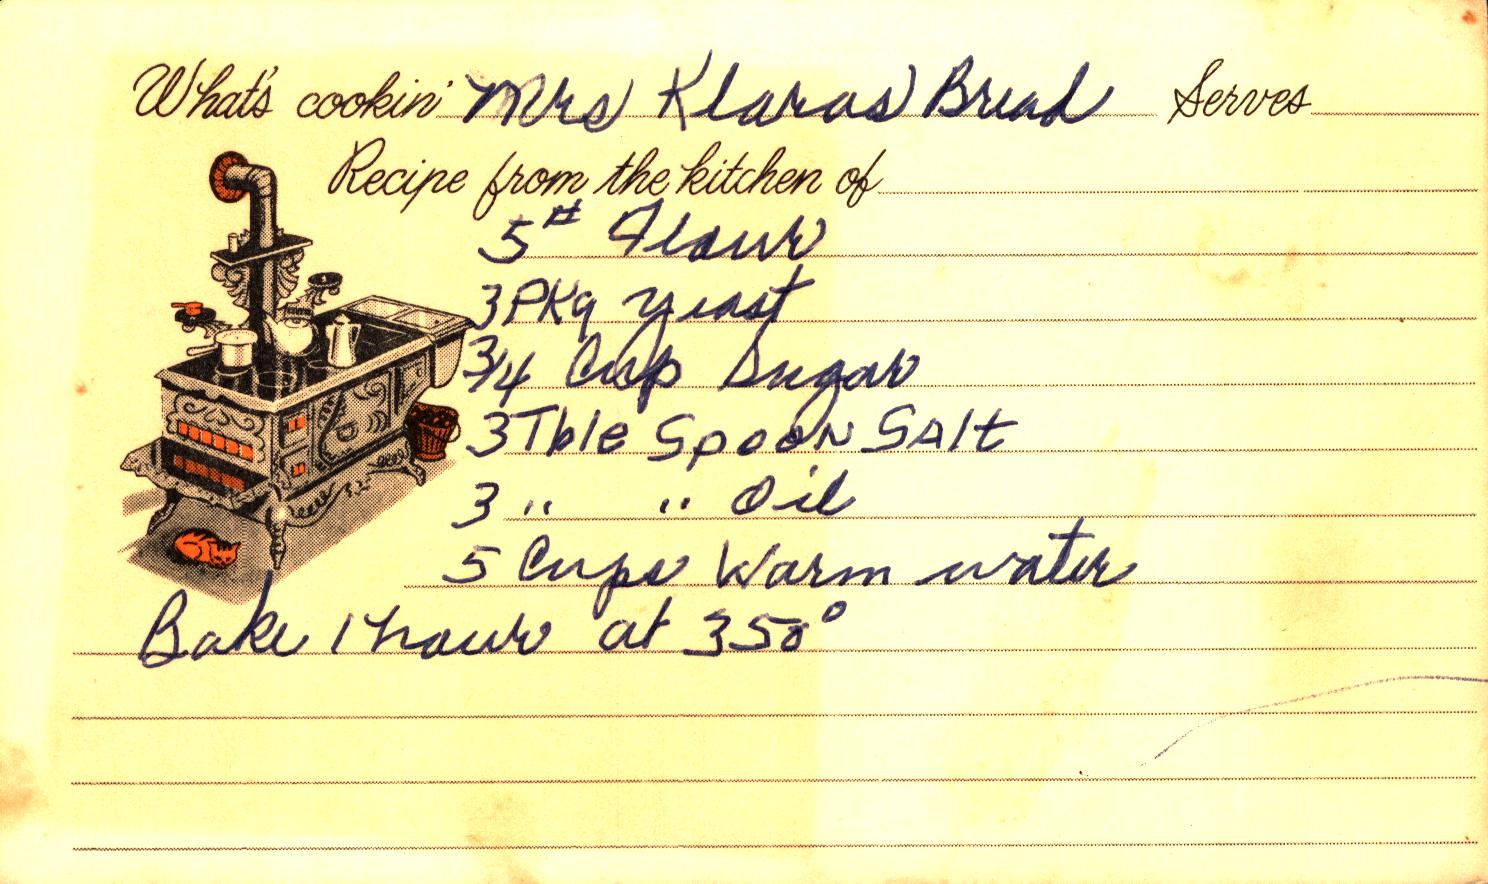 What's cookin' Mrs Klaras Bread Serves
Recipe from the kitchen of
5# Flour
3 PKg yeast
3/4 Cup Sugar
3 Tble Spoon SAlt
3 " " Oil
5 Cups Warm water
Bake 1 hour at 350°